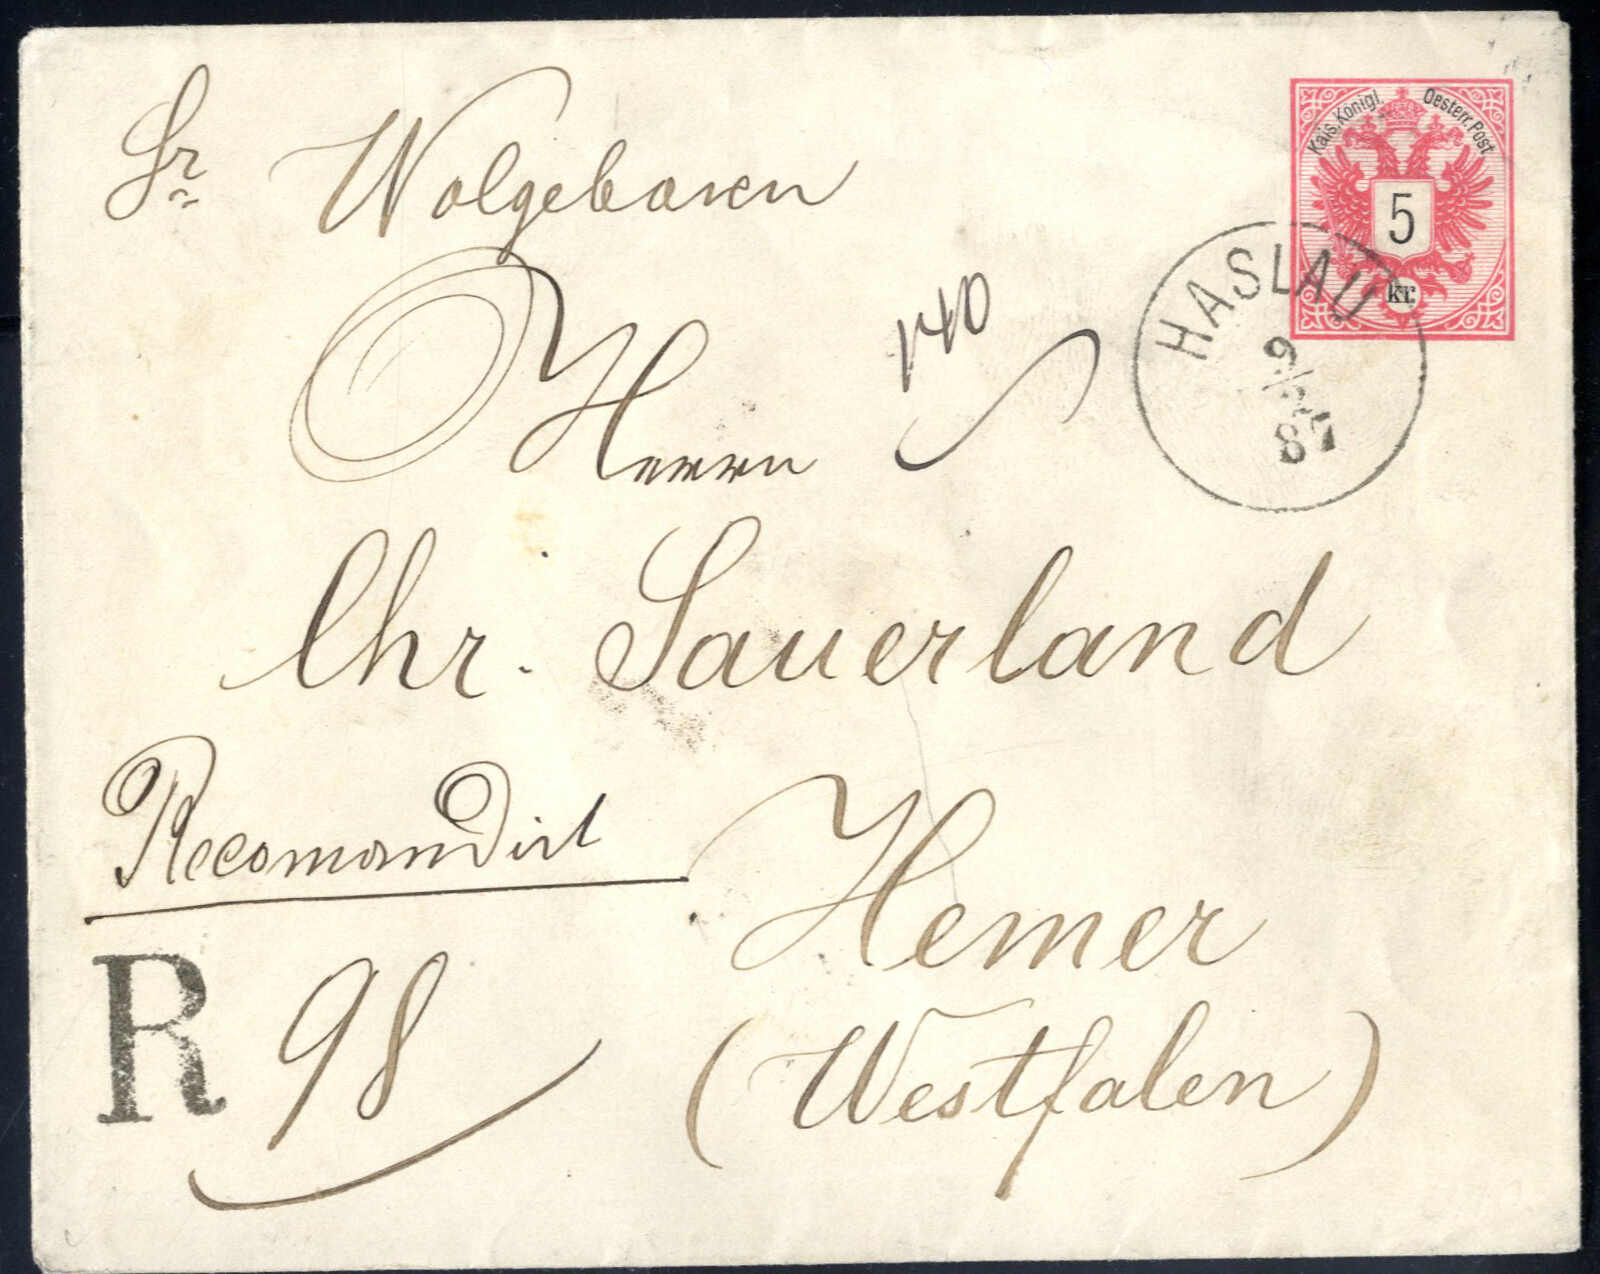 Kais. Königl. Oesterr. Post
5
kr.
HASLAU
9/2
87
Sr Wolgeboren
Herrn
140
Chr. Sauerland
Recomandirt
Hemer
R 98
(Westfalen)